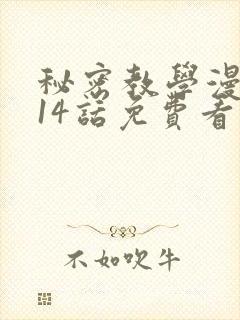 秘密教學漫
14話免費看
不如吹牛